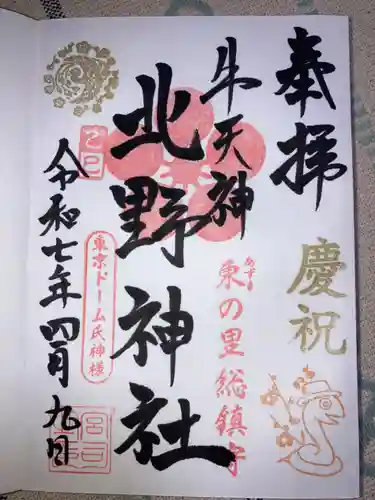 奉拝
慶祝
牛天神
東の里総鎮守
北野神社
乙巳
東京ドーム氏神様
令和七年四月九日